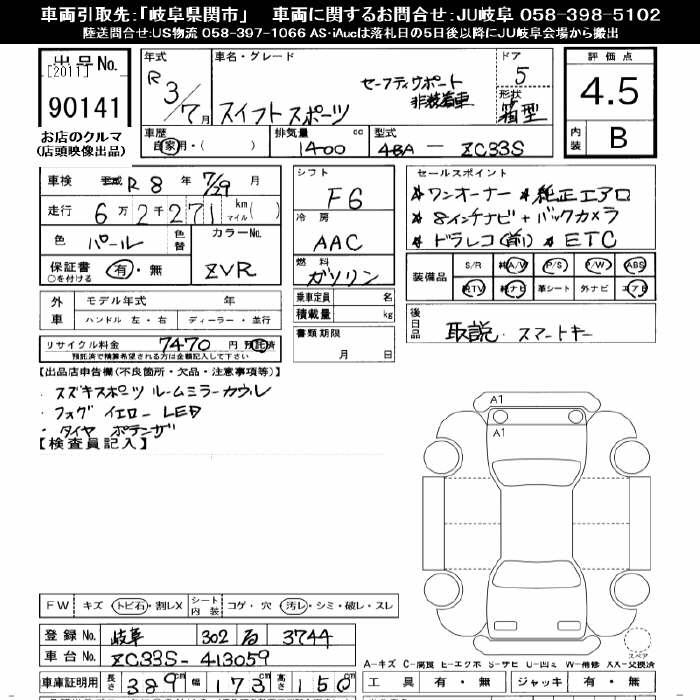 車両引取先:「岐阜県関市」 車両に関するお問合せ:JU岐阜 058-398-5102
陸送問合せ:US物流 058-397-1066 AS·iAucは落札日の5日後以降にJU岐阜会場から搬出
出品No.
[2011]
90141
お店のクルマ
(店頭映像出品)
年式 車名・グレード ドア
R 3/7月 スイフトスポーツ セーフティサポート 非装着車 5
形状 箱型
車歴 自家用・( ) 排気量 1400 cc 型式 4BA — ZC33S
評価点
4.5
内装 B
車検 R 8 年 7/29 月
走行 6万2千271 km マイル( )
色 パール 色替 カラーNo. ZVR
保証書 ○を付ける 有・無
シフト F6
冷房 AAC
燃料 ガソリン
乗車定員 名
積載量 kg
書類期限
月 日
セールスポイント
★ワンオーナー ★純正エアロ
★8インチナビ+バックカメラ
★ドラレコ(前) ★ETC
装備品 S/R 純A/W P/S P/W ABS
純TV 純ナビ 革シート 外ナビ エアB
外車 モデル年式 年
ハンドル 左・右 ディーラー・並行
リサイクル料金 7470 円 預託済
預託済で精算希望される方は金額記入して下さい
後日品 取説・スマートキー
【出品店申告欄(不良箇所・欠品・注意事項等)】
・スズキスポーツ ルームミラーカウル
・フォグ イエロー LED
・タイヤ ポテンザ
【検査員記入】
A1
A1
スペア
FW キズ・トビ石・割レX シート内装 コゲ・穴・汚レ・シミ・破レ・スレ
登録No. 岐阜 302 る 3744
車台No. ZC33S-413059
車庫証明用 長さ 389cm 幅 173cm 高さ 150cm
A-キズ C-腐食 E-エクボ S-サビ U-凹ミ W-補修 XX-交換済
工具 有・無 ジャッキ 有・無